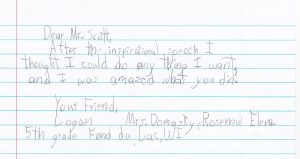 Dear Mr. Scott,
After the inspirational speech I
thought I could do any thing I want,
and I was amazed what you did.
Your Friend,
Logan Mrs. Domasky, Rosenow Elem.
5th grade Fond du Lac, WI